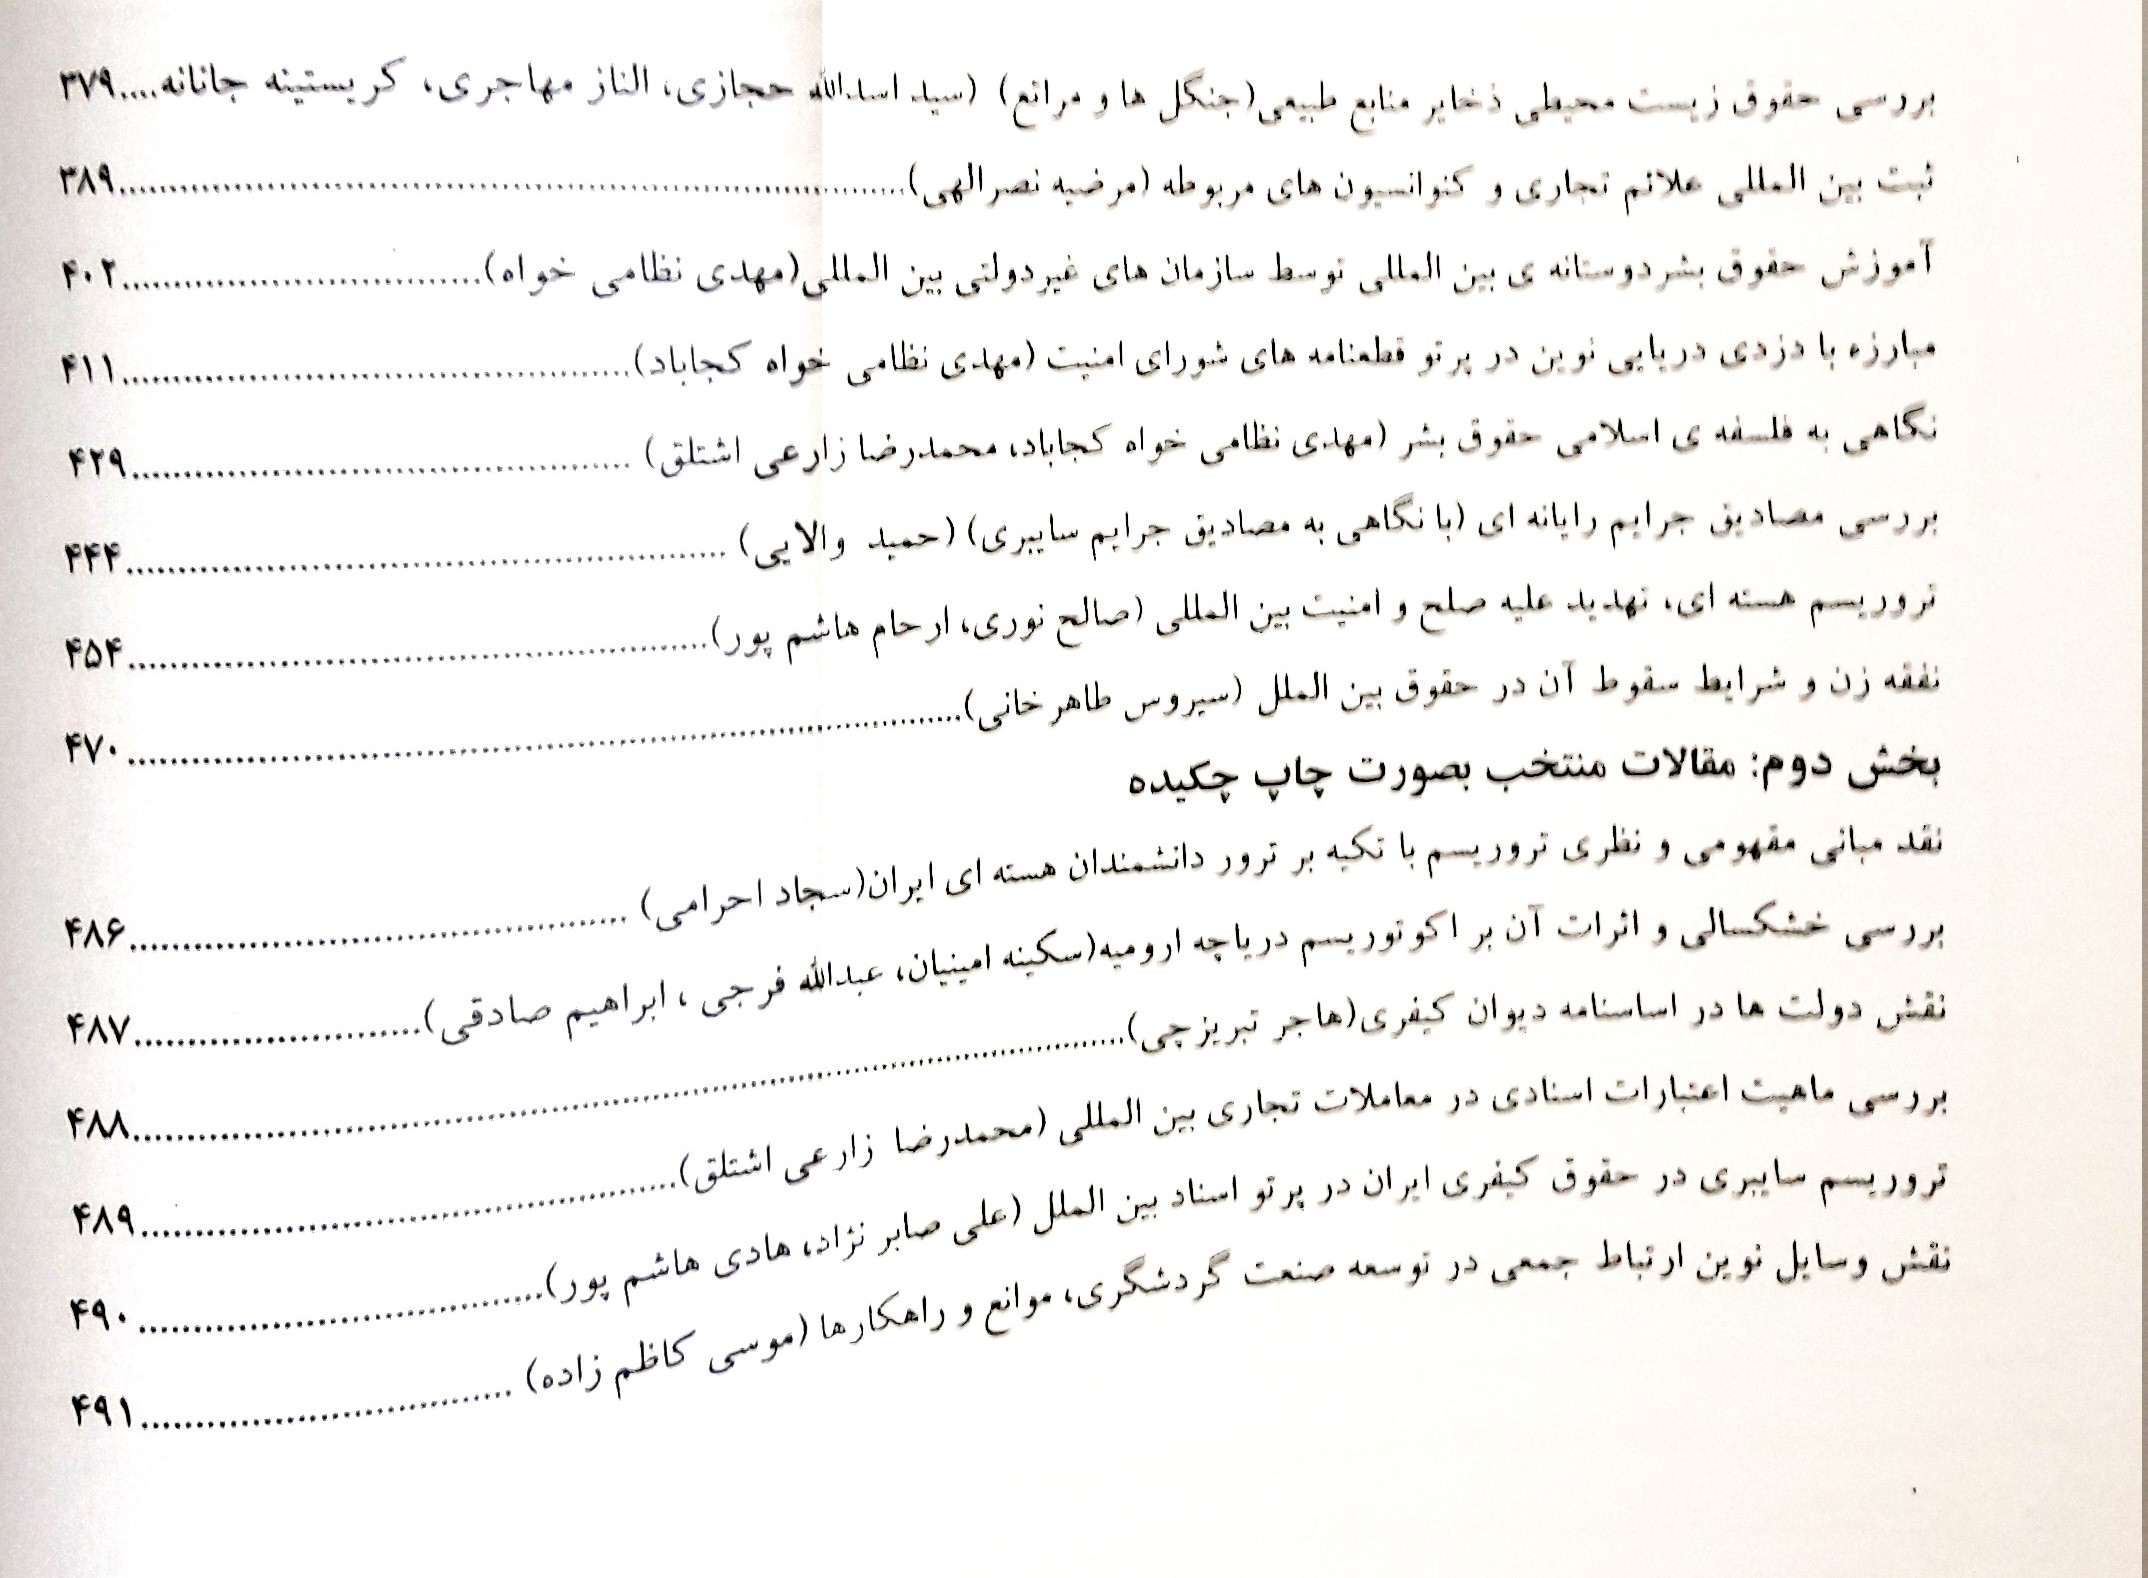 بررسی حقوق زیست محیطی ذخایر منابع طبیعی(جنگل ها و مراتع) (سید اسدالله حجازی، الناز مهاجری، کریستینه جانانه....۳۷۹
ثبت بین المللی علائم تجاری و کنوانسیون های مربوطه (مرضیه نصرالهی)..........................................................۳۸۹
آموزش حقوق بشردوستانه ی بین المللی توسط سازمان های غیردولتی بین المللی(مهدی نظامی خواه)..............................۴۰۲
مبارزه با دزدی دریایی نوین در پرتو قطعنامه های شورای امنیت (مهدی نظامی خواه کجاباد)........................................۴۱۱
نگاهی به فلسفه ی اسلامی حقوق بشر (مهدی نظامی خواه کجاباد، محمدرضا زارعی اشتلق) ........................................۴۲۹
بررسی مصادیق جرایم رایانه ای (با نگاهی به مصادیق جرایم سایبری) (حمید والایی) ..............................................۴۴۴
تروریسم هسته ای، تهدید علیه صلح و امنیت بین المللی (صالح نوری، ارحام هاشم پور)..............................................۴۵۴
نفقه زن و شرایط سقوط آن در حقوق بین الملل (سیروس طاهرخانی)................................................................۴۷۰
بخش دوم: مقالات منتخب بصورت چاپ چکیده
نقد مبانی مفهومی و نظری تروریسم با تکیه بر ترور دانشمندان هسته ای ایران(سجاد احرامی) ........................................۴۸۶
بررسی خشکسالی و اثرات آن بر اکوتوریسم دریاچه ارومیه(سکینه امینیان، عبدالله فرجی ، ابراهیم صادقی)........................۴۸۷
نقش دولت ها در اساسنامه دیوان کیفری(هاجر تبریزچی)..............................................................................۴۸۸
بررسی ماهیت اعتبارات اسنادی در معاملات تجاری بین المللی (محمدرضا زارعی اشتلق)..........................................۴۸۹
تروریسم سایبری در حقوق کیفری ایران در پرتو اسناد بین الملل (علی صابر نژاد، هادی هاشم پور)................................۴۹۰
نقش وسایل نوین ارتباط جمعی در توسعه صنعت گردشگری، موانع و راهکارها (موسی کاظم زاده) ..............................۴۹۱